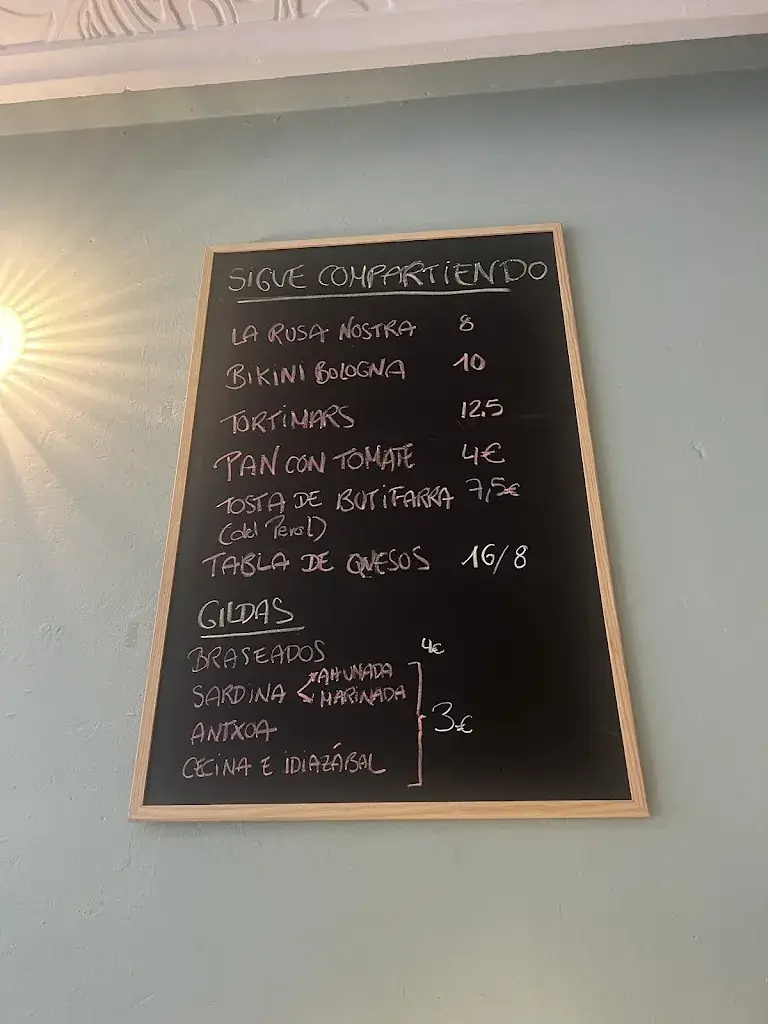 SIGUE COMPARTIENDO
LA RUSA NOSTRA 8
BIKINI BOLOGNA 10
TORTIMARS 12.5
PAN CON TOMATE 4€
TOSTA DE BUTIFARRA 7,5€
(del Perol)
TABLA DE QUESOS 16/8
GILDAS
BRASEADOS 4€
SARDINA AHUMADA
MARINADA
ANTXOA 3€
CECINA E IDIAZÁBAL